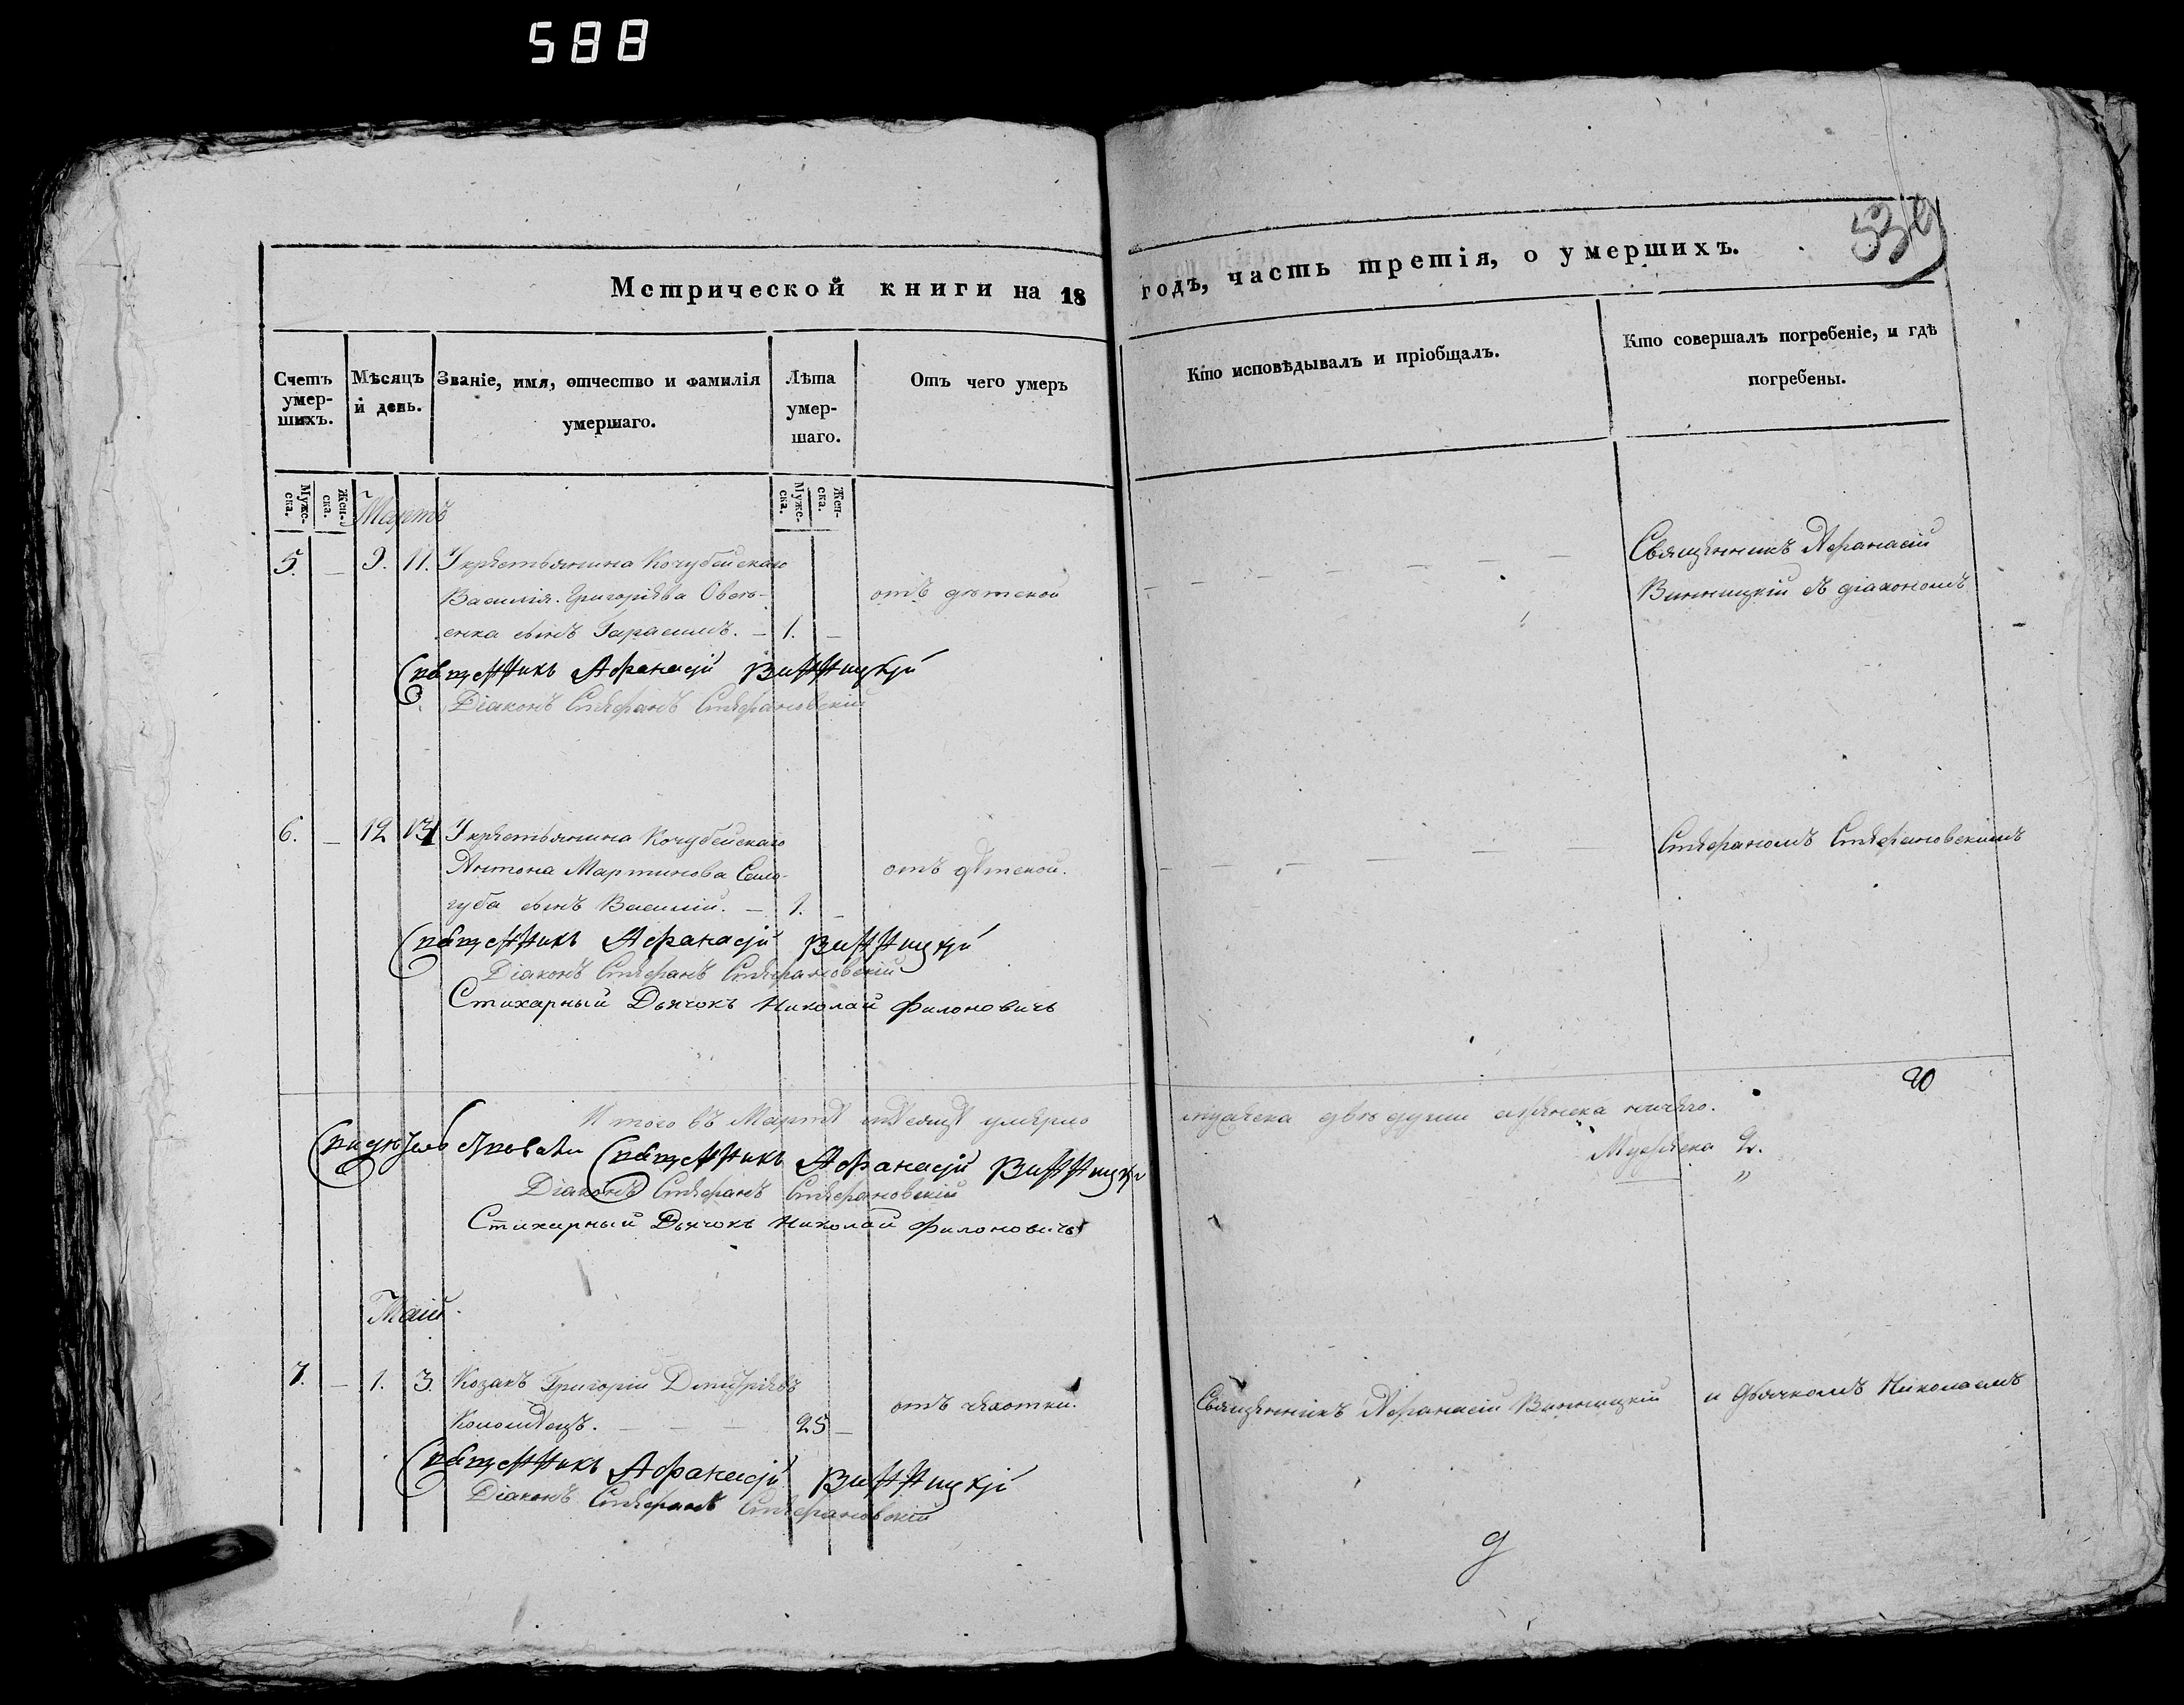 588
539
Метрической книги на 18 годъ, часть третія, о умершихъ.
Счетъ умер-шихъ.
Мѣсяцъ и день.
Званіе, имя, отчество и фамилія умершаго.
Лѣта умер-шаго.
Отъ чего умеръ
Кто исповѣдывалъ и пріобщалъ.
Кто совершалъ погребеніе, и гдѣ погребены.
Мужс-ска.
Жен-ска.
Мужс-ска.
Жен-ска.
Мартъ
5. — 9. 11. У крестьянина Кочубейскаго
Василія Григоріева Овсі-
енка сынъ Гарасимъ. — 1. —
отъ дѣтской
Священникъ Афанасій
Винницкій съ діакономъ
Священникъ Афанасій Винницкій
Діаконъ Стефанъ Стефановскій
6. — 12 13 У крестьянина Кочубейскаго
Антона Мартинова Сало-
губа сынъ Василій. — 1. —
отъ дѣтской.
Стефаномъ Стефановскимъ
Священникъ Афанасій Винницкій
Діаконъ Стефанъ Стефановскій
Стихарный Дьячокъ Николай Филоновичъ
20
Итого въ Мартѣ мѣсяцѣ умерло мужеска двѣ души а женска ничего.
Мужеска 2.
"
Свидѣтельствовали Священникъ Афанасій Винницкій
Діаконъ Стефанъ Стефановскій
Стихарный Дьячокъ Николай Филоновичъ
Маій
7. — 1. 3. Козакъ Григорій Дмитріевъ
Коломѣецъ. — — — 25 —
отъ чахотки.
Священникъ Афанасій Винницкій
и дьячкомъ Николаемъ
Священникъ Афанасій Винницкій
Діаконъ Стефанъ Стефановскій
д